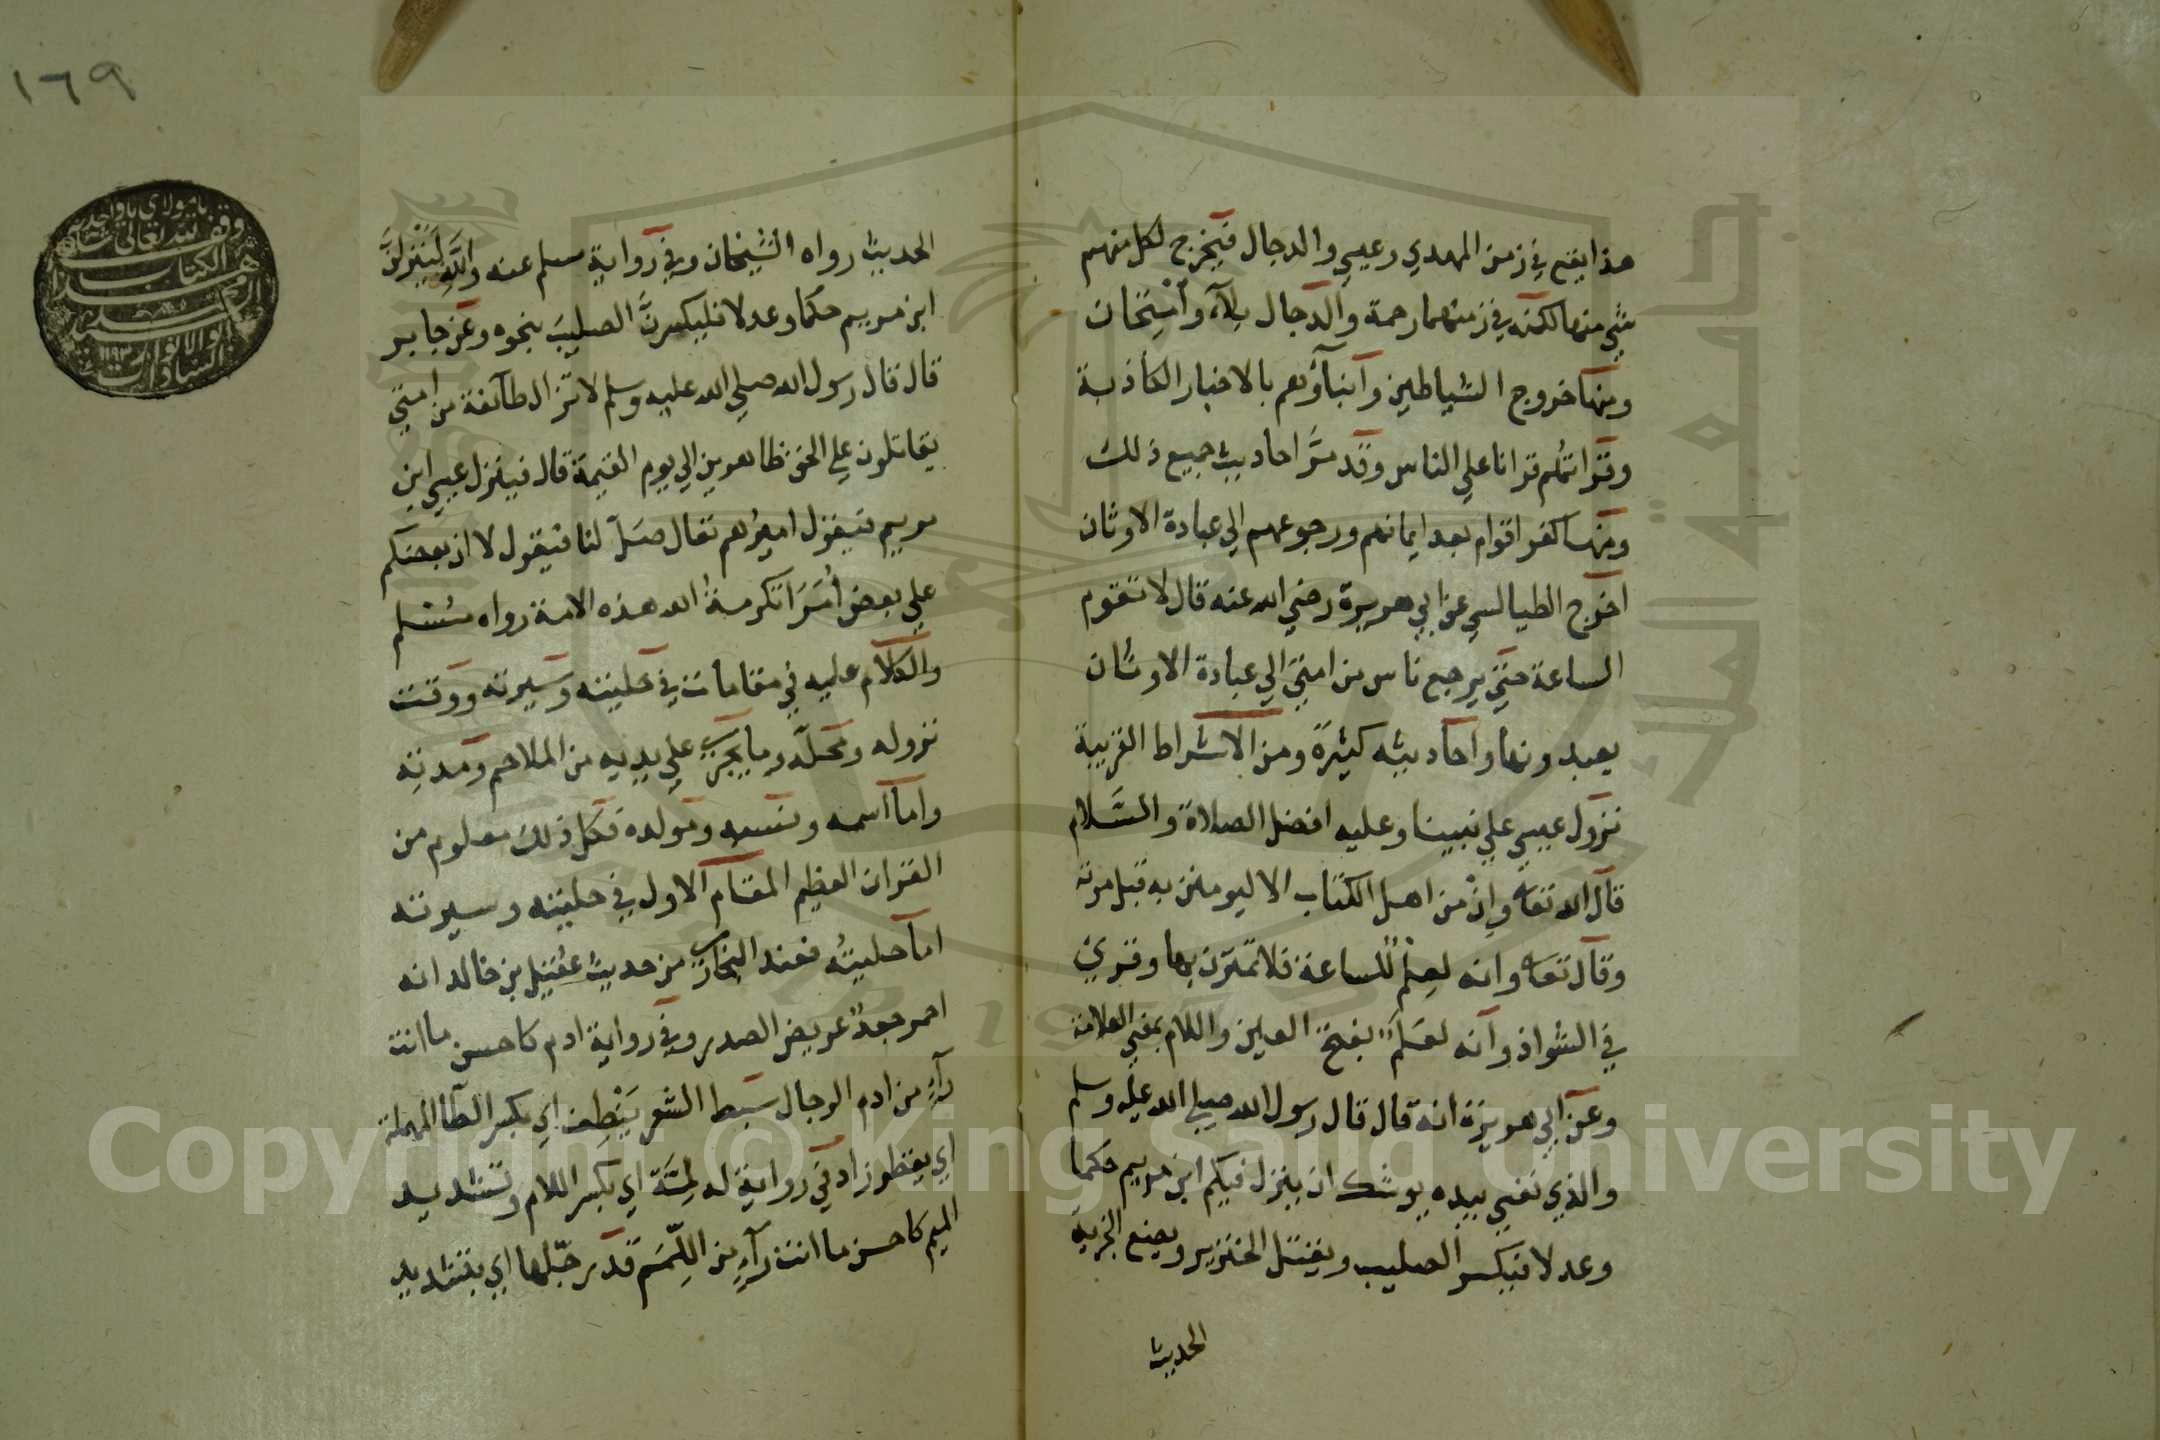 هذا يقع في زمن المهدي وعيسي والدجال فيخرج لكل منهم
شي منها لكنه في زمنهما رحمة والدجال بلآء وامتحان
ومنها خروج الشياطين وانبآؤهم بالاخبار الكاذبة
وقراتهم قرانا علي الناس وقد مرَّ احاديث جميع ذلك
ومنها كفر اقوام بعد ايمانهم ورجوعهم الي عبادة الاوثان
اخرج الطيالسي عن ابي هريرة رضي الله عنه قال لا تقوم
الساعة حتي يرجع ناس من امتي الي عبادة الاوثان
يعبدونها واحاديثه كثيرة ومن الاشراط القريبة
نزول عيسي علي نبينا وعليه افضل الصلاة والسَّلام
قال الله تعا وان من اهل الكتاب الا ليومنن به قبل موته
وقال تعا وانه لعِلْمٌ للساعة فلا تمترن بها وقري
في الشواذ وانه لعَلَمٌ بفتح العين واللام بمعني العلامة
وعن ابي هريرة انه قال قال رسول الله صلي الله عليه وسلم
والذي نفسي بيده يوشك ان ينزل فيكم ابن مريم حكما
وعدلا فيكسر الصليب ويقتل الخنزير ويضع الجزية
الحديث
١٦٩
الحديث رواه الشيخان وفي رواية مسلم عنه والله لَيَنْزِلَنَّ
ابن مريم حكما وعدلا فليكسرنَّ الصليبَ بنحوه وعن جابر
قال قال رسول الله صلي الله عليه وسلم لا تزال طآئفة من امتي
يقاتلون علي الحق ظاهرين الي يوم القيمة قال فينزل عيسي ابن
مريم فيقول اميرُهم تعال صَلّ لنا فيقول لا ان بعضكم
علي بعض أُمَرَا تكرمةُ الله هذه الامة رواه مسلم
والكلام عليه في مقامات في حليته وسيرته ووقت
نزوله ومحلّه وما يجري علي يديه من الملاحم ومدته
واما اسمه ونسبه ومولده فكل ذلك معلوم من
القران العظيم المقام الاول في حليته وسيرته
اما حليتُه فعند البخاري من حديث عُقَيل بن خالد انه
احمر جعدٌ عريض الصدر وفي رواية ادم كاحسن ما انت
رآءٍ من ادم الرجال سبط الشعر يَنْطِف اي بكسر الطآ المهملة
اي يقطر زاد في رواية له لِمَّة اي بكسر اللام وتشديد
الميم كاحسن ما انت رآءٍ من اللِّمَم قد رجّلها اي بتشديد